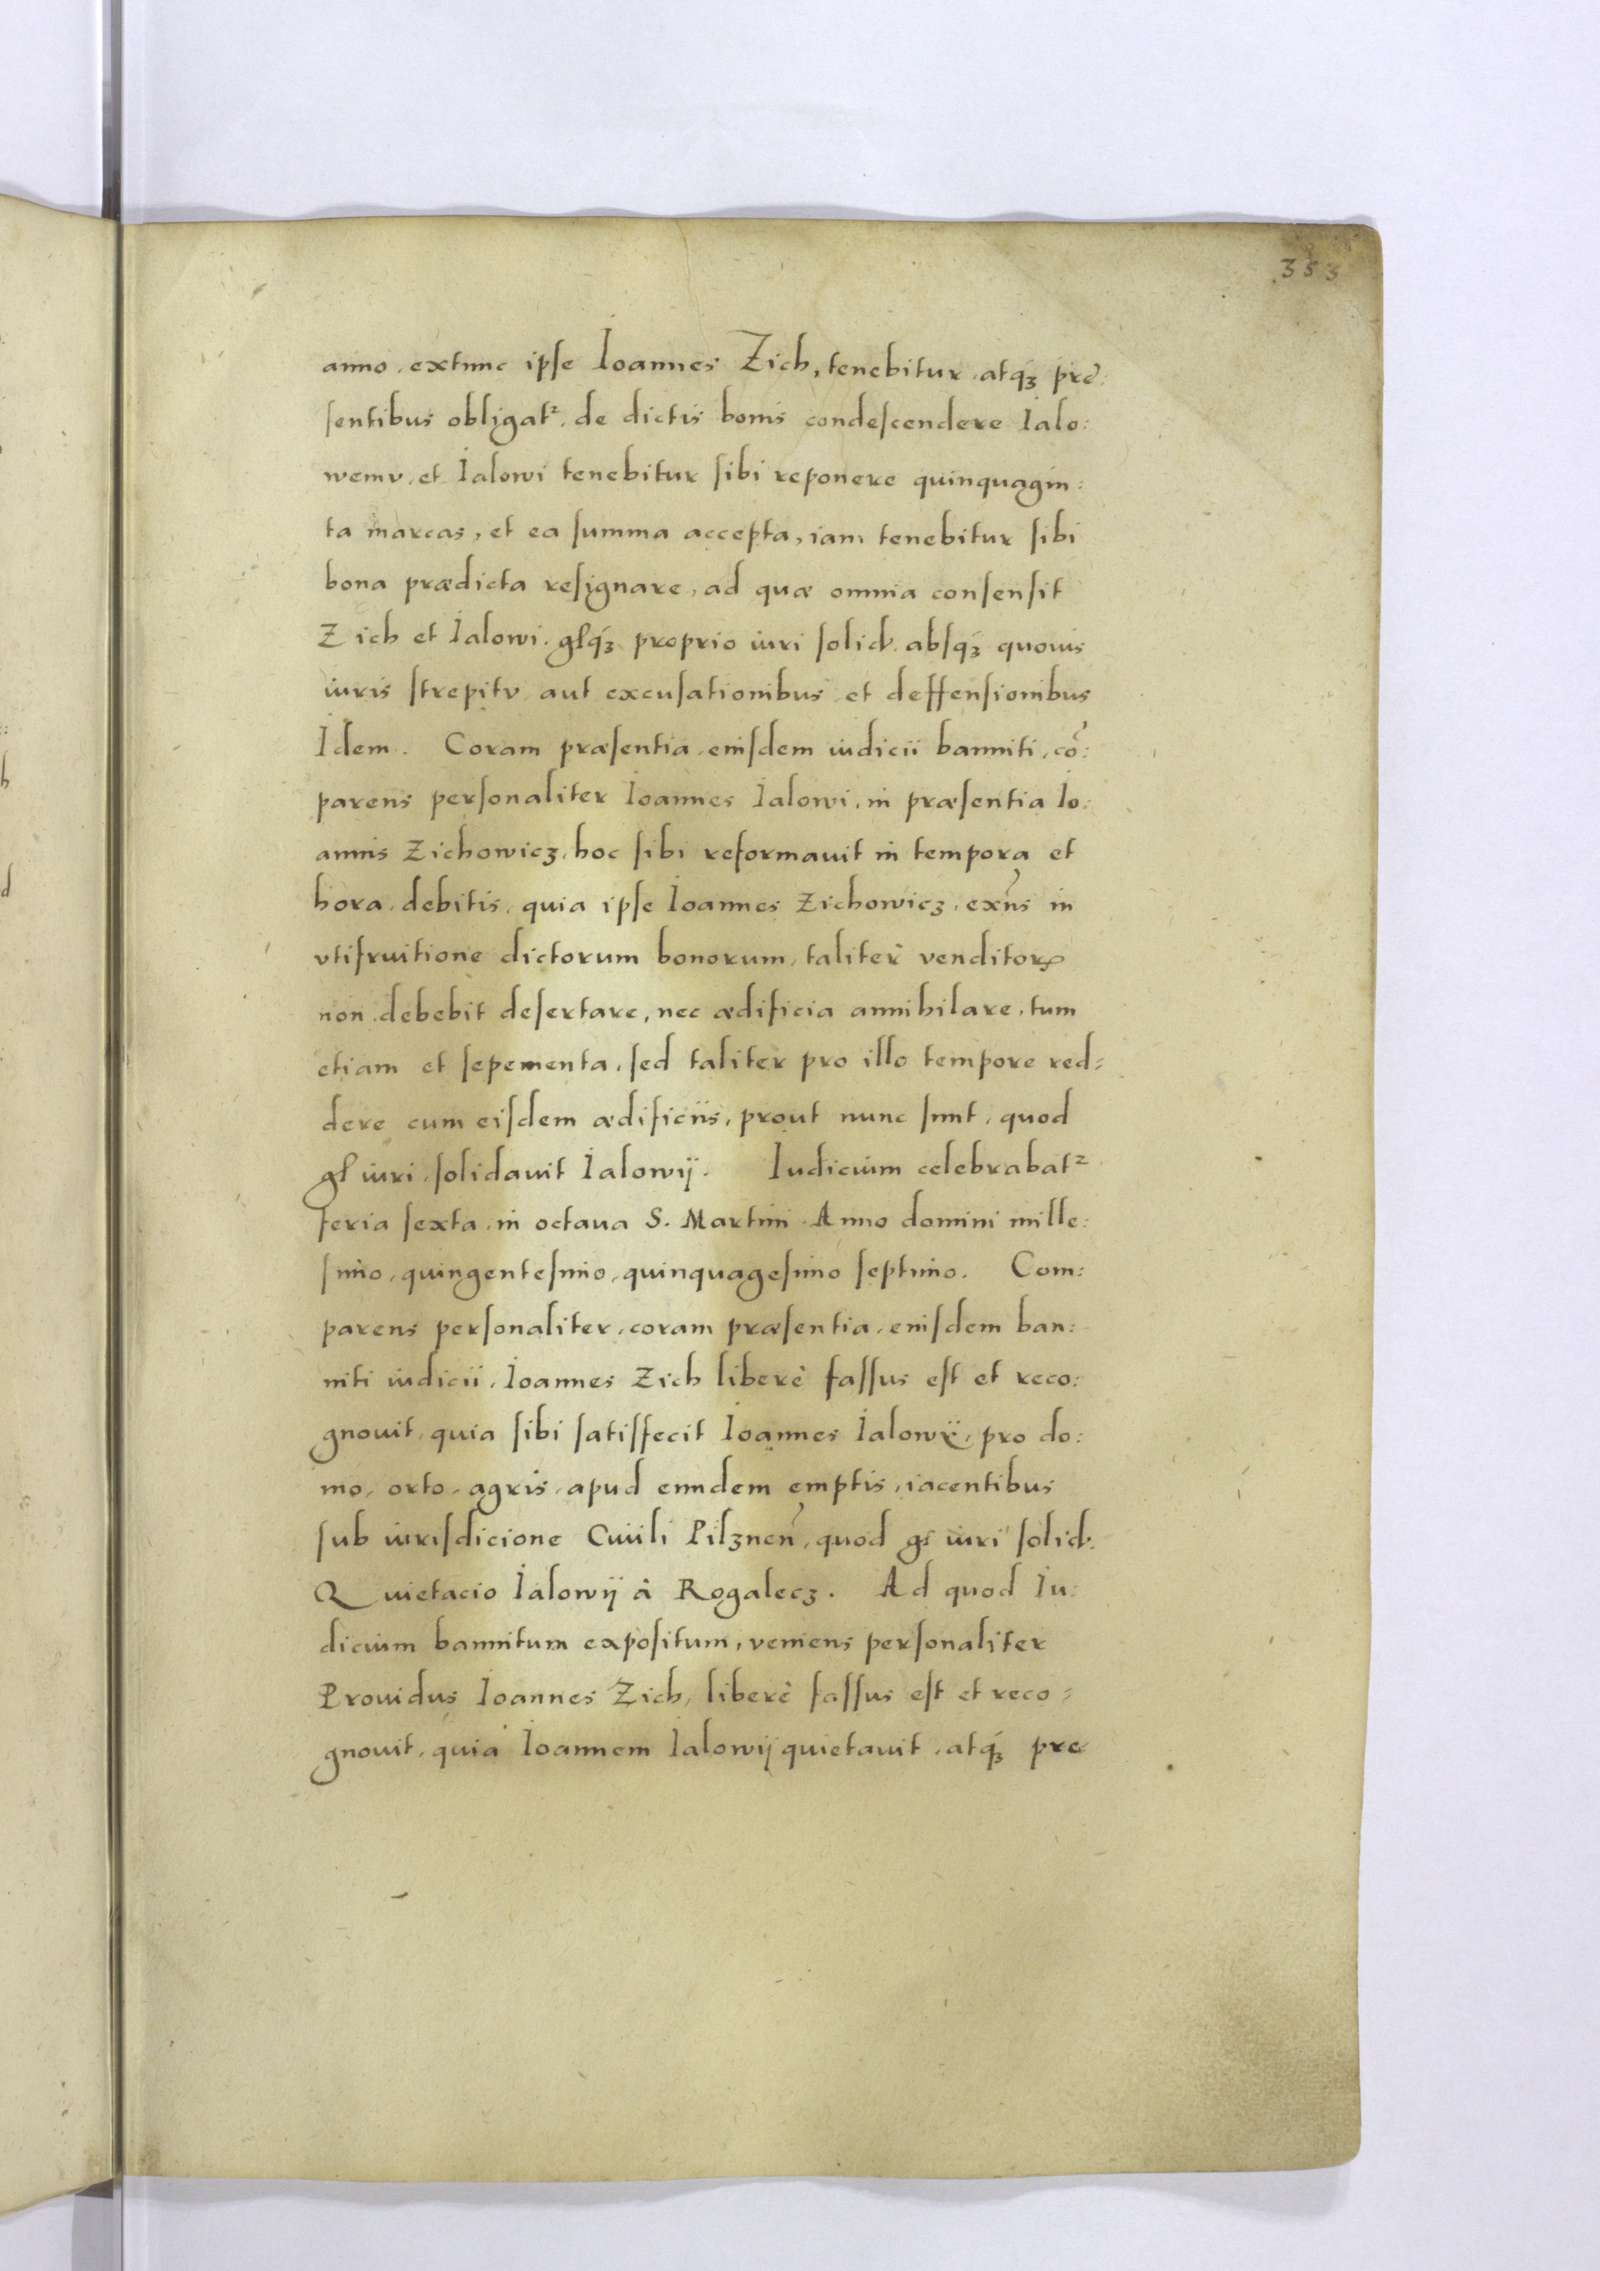 353
anno, extunc ipse Ioannes Zich, tenebitur, atq₃ præ:
sentibus obligat², de dictis bonis condescendere Ialo:
wemv, et Ialowi tenebitur sibi reponere quinquagin:
ta marcas, et ea summa accepta, iam tenebitur sibi
bona prædicta resignare, ad quæ omnia consensit
Zich et Ialowi, glq₃ proprio iuri solid. absq₃ quouis
iuris strepitv aut excusationibus et deffensionibus
Idem. Coram præsentia, eiusdem iudicii banniti, cō:
parens personaliter Ioannes Ialowi, in præsentia Io:
annis Zichowicz, hoc sibi reformauit in tempora et
hora, debitis, quia ipse Ioannes Zichowicz, exn̄s in
vtifruitione dictorum bonorum, taliter venditorꝝ
non debebit desertare, nec ædificia annihilare, tum
etiam et sepementa, sed taliter pro illo tempore red=
dere cum eisdem ædificiis, prout nunc sunt, quod
gl iuri, solidauit Ialowij. Iudicium celebrabat²
feria sexta, in octaua S. Martini Anno domini mille:
simo, quingentesimo, quinquagesimo septimo. Com:
parens personaliter, coram præsentia, eiusdem ban:
niti iudicii, Ioannes Zich liberè fassus est et reco:
gnouit, quia sibi satisfecit Ioannes Ialowij, pro do:
mo, orto, agris, apud eundem emptis, iacentibus
sub iurisdicione Ciuili Pilznen̄, quod gl iuri solid.
Quietacio Ialowij à Rogalecz. Ad quod Iu:
dicium bannitum expositum, veniens personaliter
Prouidus Ioannes Zich, liberè fassus est et reco=
gnouit, quia Ioannem Ialowij quietauit, atq₃ præ